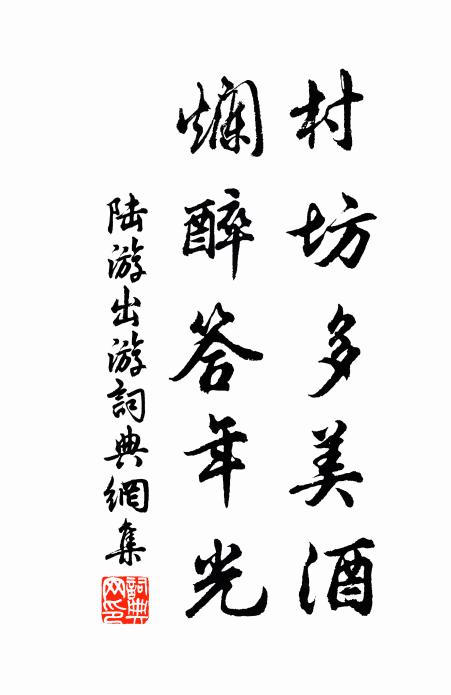 村坊多美酒
爛醉答年光
陆游出游詞典網集
詞典網印